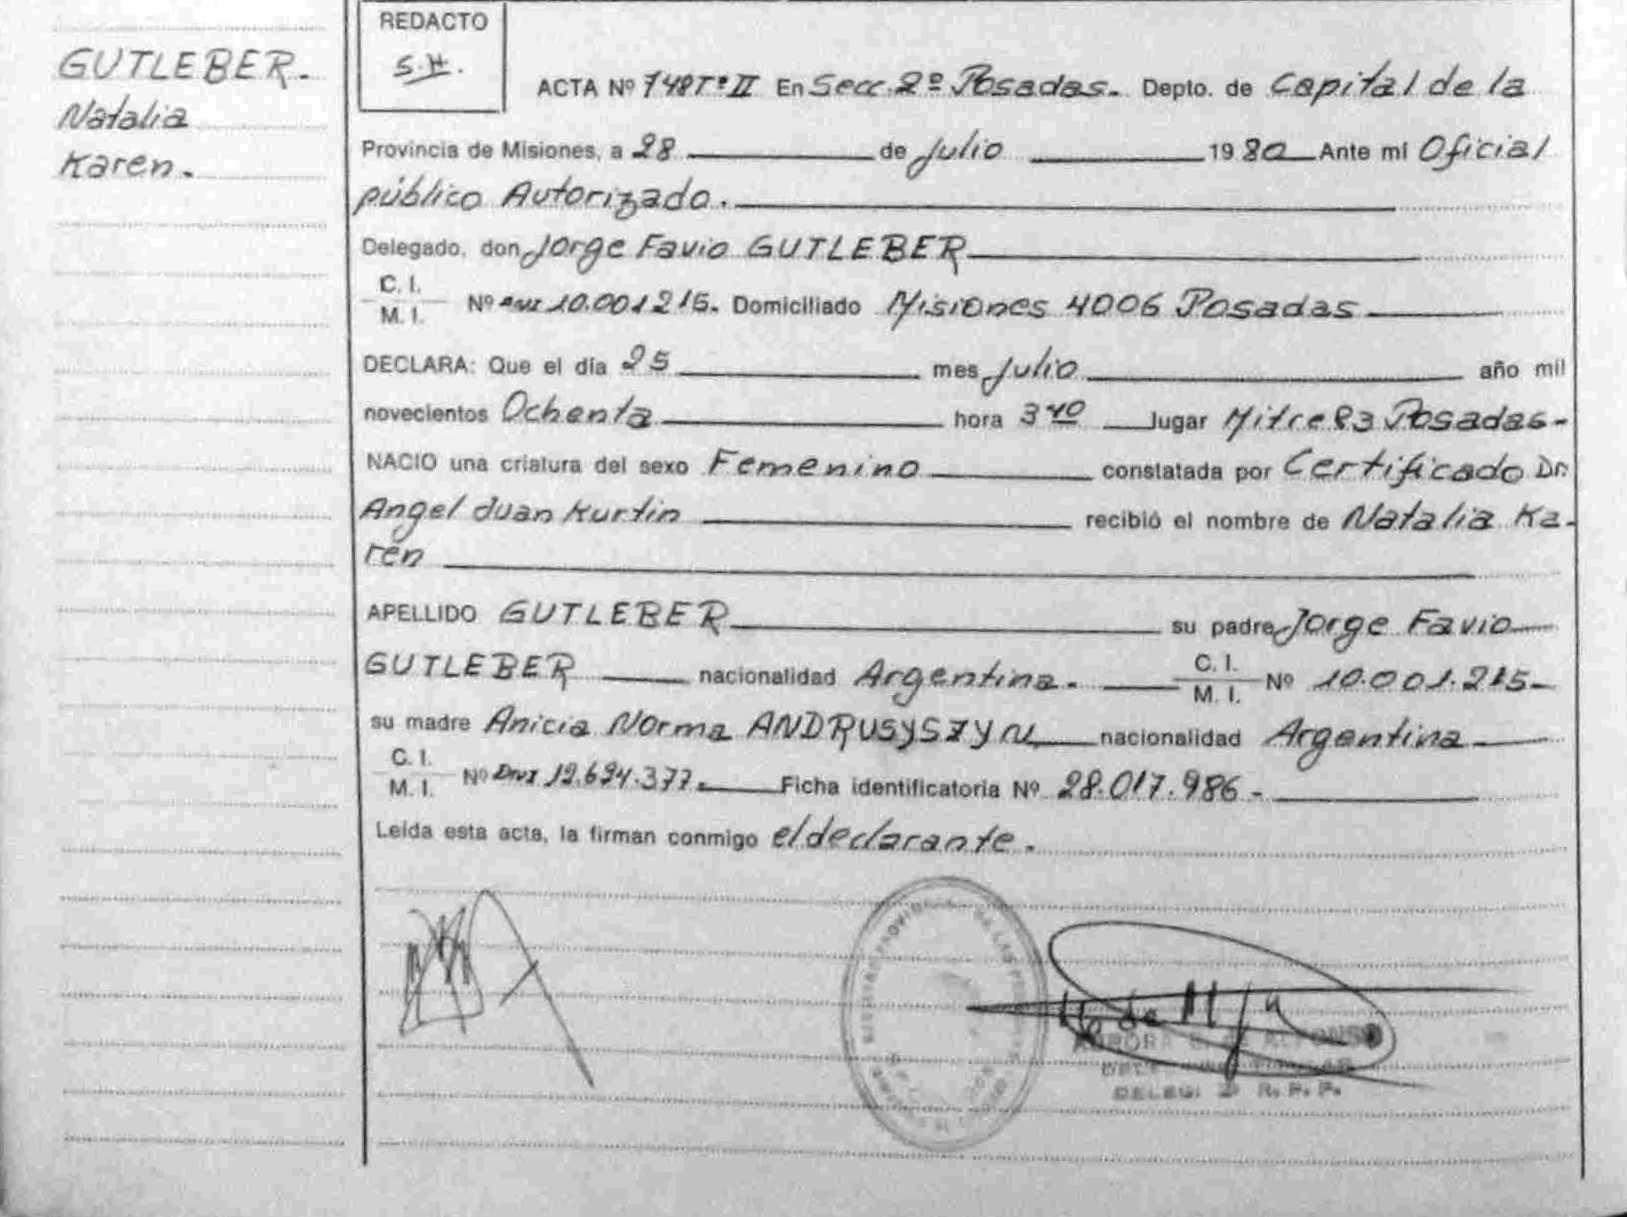 GUTLEBER.
Natalia
Karen.
REDACTO
S.H.
ACTA Nº 748Tº II En Secc. 2º Posadas. Depto. de Capital de la
Provincia de Misiones, a 28 de Julio 1980 Ante mi Oficial
público Autorizado.
Delegado, don Jorge Favio GUTLEBER
C. I.
M. I. Nº DNI 10.001215. Domiciliado Misiones 4006 Posadas
DECLARA: Que el día 25 mes Julio año mil
novecientos Ochenta hora 3 40 Lugar Mitre 83 Posadas-
NACIO una criatura del sexo Femenino constatada por Certificado Dr.
Angel Juan Kurtin recibió el nombre de Natalia Ka-
ren
APELLIDO GUTLEBER su padre Jorge Favio
GUTLEBER nacionalidad Argentina. C. I.
M. I. Nº 10.001.215-
su madre Anicia Norma ANDRUSYSZYN nacionalidad Argentina
C. I.
M. I. Nº DNI 12.624.377. Ficha identificatoria Nº 28.017.986-
Leída esta acta, la firman conmigo el declarante.
DELEG. R. P. P.